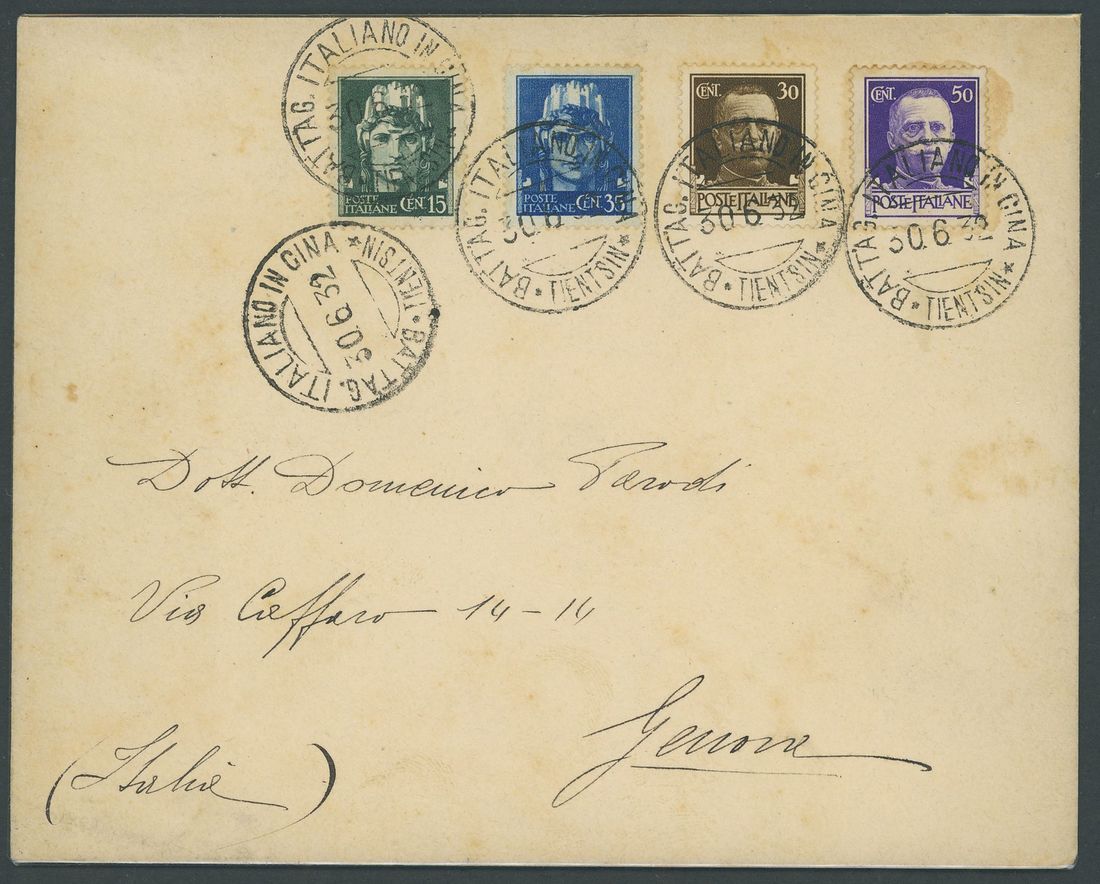 BATTAG. ITALIANO IN CINA
30.6.32
* TIENTSIN *
POSTE ITALIANE CENT 15
POSTE ITALIANE CENT 35
BATTAG. ITALIANO IN CINA
30.6.32
* TIENTSIN *
CENT. 30
POSTE ITALIANE
BATTAG. ITALIANO IN CINA
30.6.32
* TIENTSIN *
CENT. 50
POSTE ITALIANE
BATTAG. ITALIANO IN CINA
30.6.32
* TIENTSIN *
BATTAG. ITALIANO IN CINA
30.6.32
* TIENTSIN *
Dott. Domenico Parodi
Via Caffaro 14-14
Genova
(Italia)